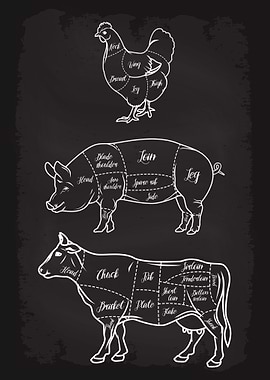 Neck
Wing
Breast
Leg
Thigh
Head
Blade
shoulder
Loin
Arm
shoulder
Spare rib
Side
Leg
Head
Chuck
Rib
Sirloin
Tenderloin
Short
loin
Bottom
sirloin
Brisket
Plate
Flank